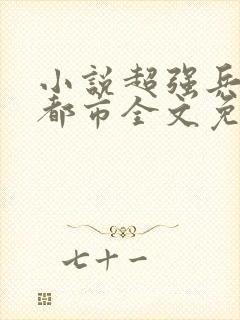 小說超强兵
都市全文免
七十一